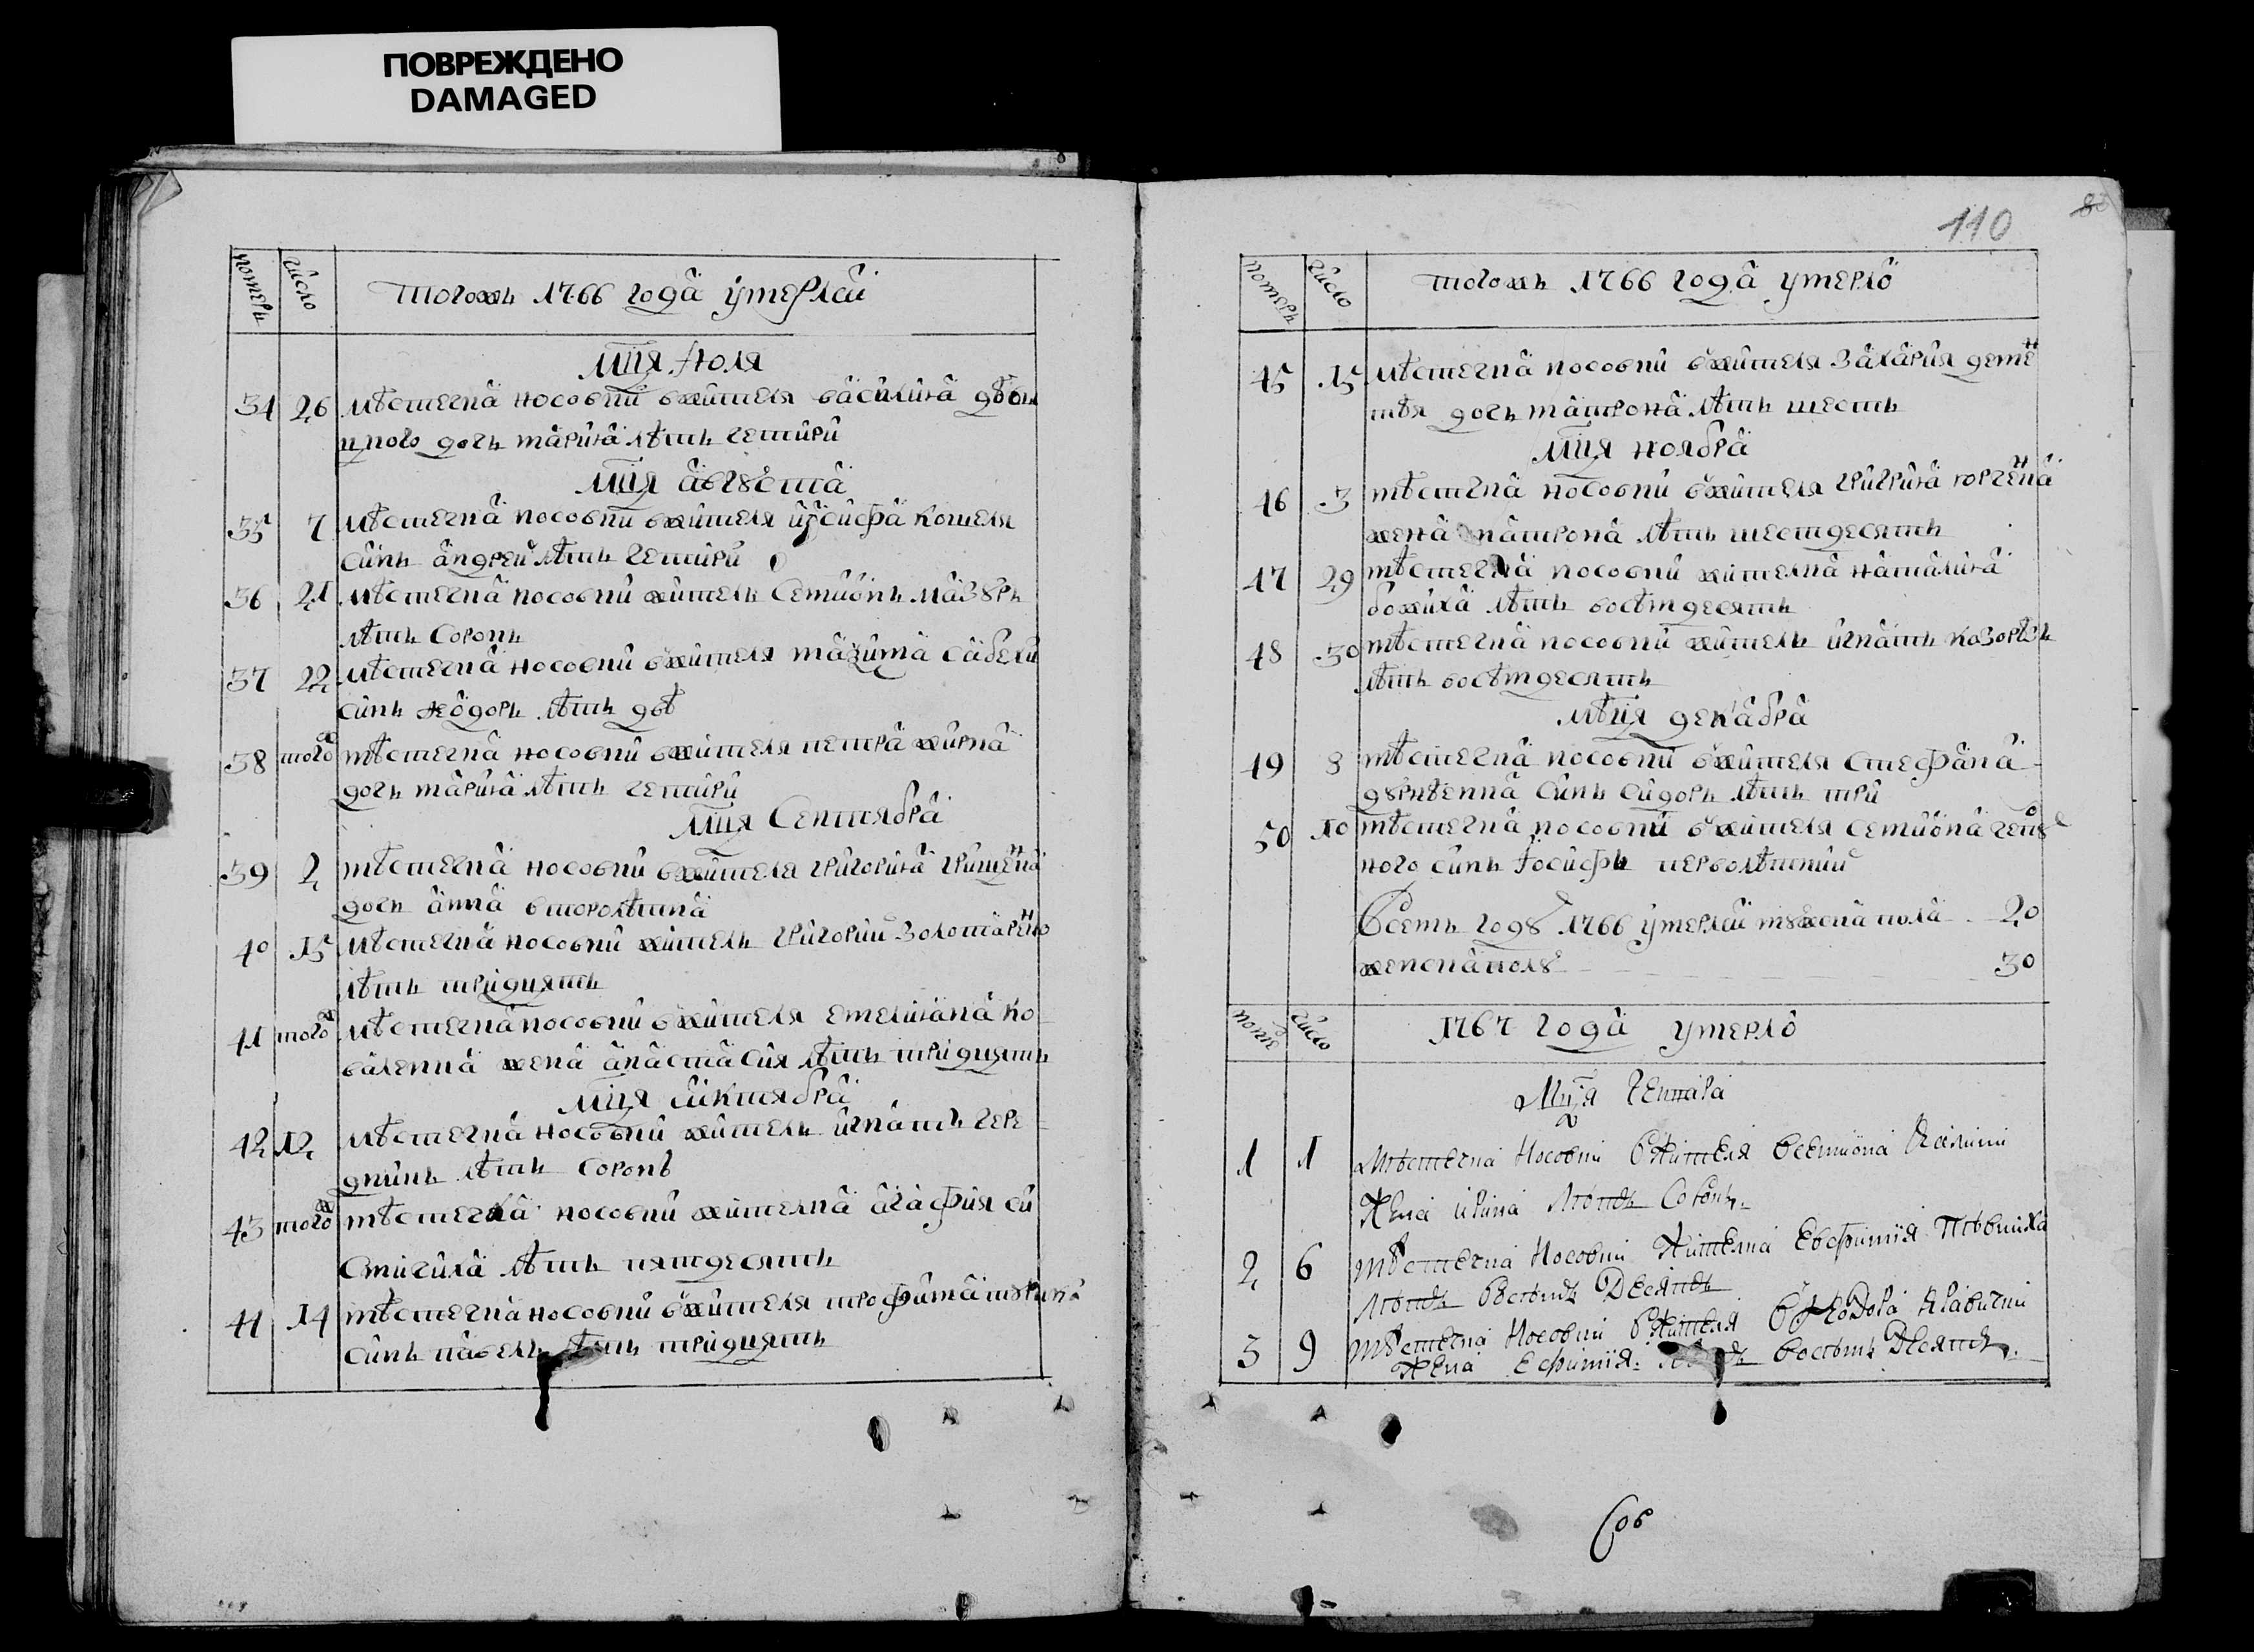 ПОВРЕЖДЕНО
DAMAGED
номеръ
число
тогожъ 1766 года умерло
мця июля
34 26 мѣстечка носовки ужителя василия
ного дочь марина лѣтъ четири
мця августа
35 7 мѣстечка носовки ужителя иѡсифа кошеля
синъ андрей лѣтъ четири
36 21 мѣстечка носовки житель семиѡнъ мазуръ
лѣтъ сорокъ
37 22 мѣстечка носовки ужителя мазима
синъ ѳеодоръ лѣтъ двѣ
38 тогож мѣстечка носовки ужителя петра жирка
дочь марина лѣтъ четири
мця сентября
39 2 мѣстечка носовки ужителя григория грищенка
дочь анна второлѣтна
40 15 мѣстечка носовки житель григорий золотаренко
лѣтъ тридцять
41 тогож мѣстечка носовки ужителя емелияна ко
валенка жена анастасия лѣтъ тридцять
мця ѡктября
42 12 мѣстечка носовки житель игнатъ чере
дникъ лѣтъ сорокъ
43 тогож мѣстечка носовки жителка агафия си
лѣтъ пятдесятъ
44 14 мѣстечка носовки ужителя трофима
синъ павелъ лѣтъ тридцять
110
номеръ
число
тогожъ 1766 года умерло
45 15 мѣстечка носовки ужителя захария
дочь матрона лѣтъ шесть
мця ноября
46 3 мѣстечка носовки ужителя григория юрченка
жена матрона лѣтъ шестдесятъ
47 29 мѣстечка носовки жителка наталия
божиха лѣтъ восѣмдесятъ
48 30 мѣстечка носовки житель игнатъ козорѣзъ
лѣтъ восѣмдесятъ
мѣця декабра
49 8 мѣстечка носовки ужителя стефана
синъ сидоръ лѣтъ три
50 10 мѣстечка носовки ужителя семиѡна
ного синъ иосифъ перволѣтний
Всемъ году 1766 умерло мужска пола 20
женска полу 30
число
1767 года умерло
Мця генъара
1 1 Мѣстечка Носовки Ужителя Семиона Калини
Жена ирина Лѣтъ Сорокъ
2 6 мѣстечка Носовки Жителка Евфимия
Лѣтъ Восѣмъ Десятъ
3 9 мѣстечка Носовки Ужителя Ѳеодора
Жена Ефимия Лѣтъ Восѣмъ Десятъ
Сов